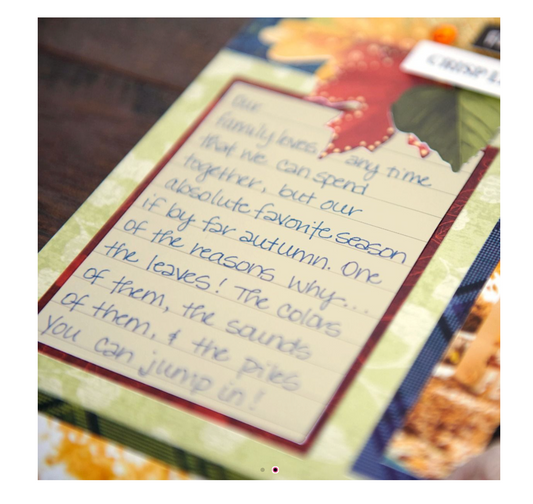 our
family loves any time
that we can spend
together, but our
absolute favorite season
if by far autumn. One
of the reasons why...
the leaves! The colors
of them, the sounds
of them, & the piles
you can jump in!